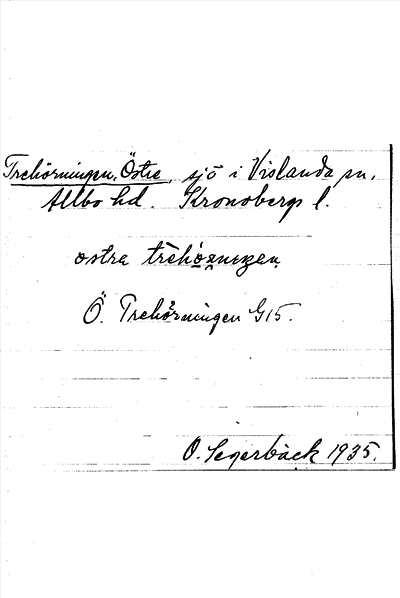 Trehörningen, Östre, sjö i Vislanda sn,
Allbo hd. Kronobergs l.
ostre trèhǫ́ṛneŋeṇ
Ö. Trehörningen G15.
O. Segerbäck 1935.